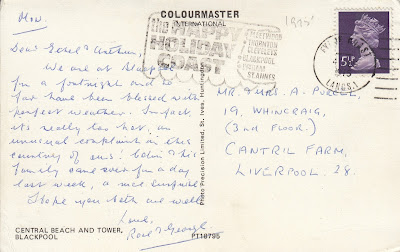 COLOURMASTER
INTERNATIONAL
Mon.
Dear Ethel & Arthur,
We are at Blackpool
for a fortnight and so
far have been blessed with
perfect weather. In fact,
it's really too hot, an
unusual complaint in this
country of ours! Colin & his
family came over for a day
last week, a nice surprise
I hope you both are well
Love,
Rose & George
CENTRAL BEACH AND TOWER,
BLACKPOOL
PT18795
Photo Precision Limited, St. Ives, Huntingdon
1975
the HAPPY
HOLIDAY
COAST
FLEETWOOD
THORNTON
CLEVELEYS
BLACKPOOL
ST. ANNES
LANCS.
5½P
MR. & MRS. A. PURCELL,
19, WHINCRAIG,
(3RD FLOOR.)
CANTRIL FARM,
LIVERPOOL. 28.